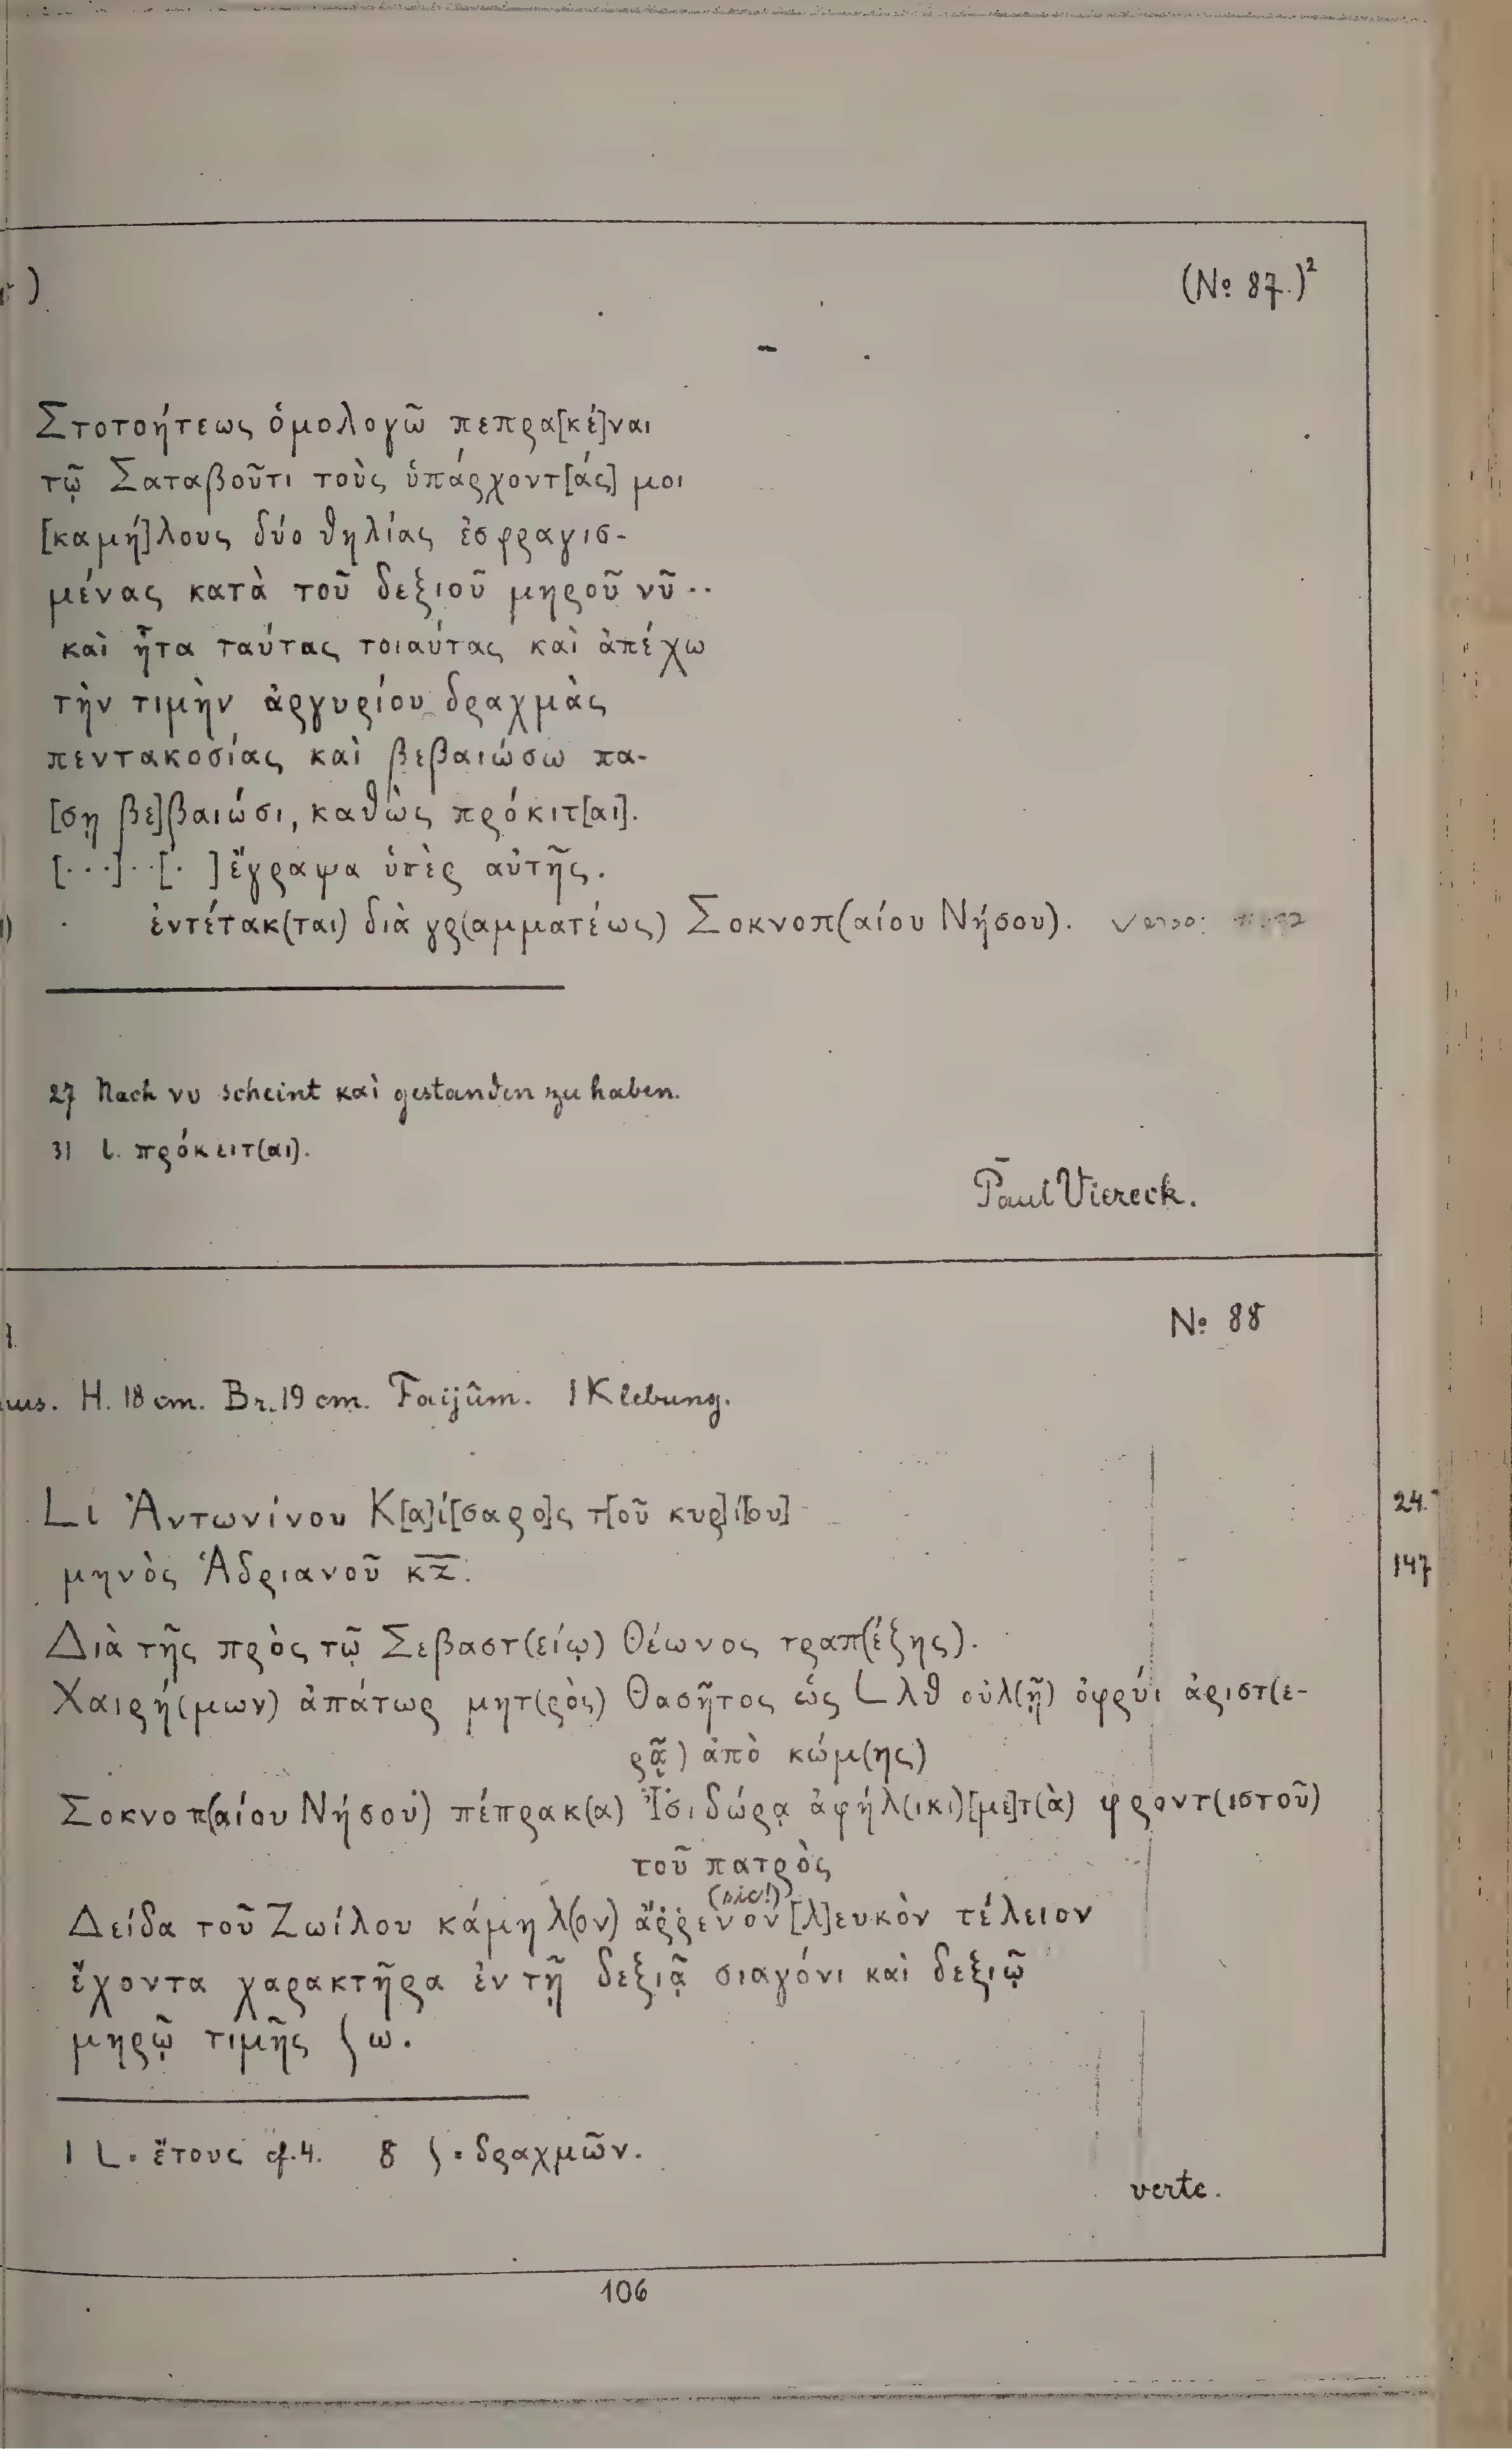 (№ 87.)²
Στοτοήτεως ὁμολογῶ πεπρα[κέ]ναι
τῷ Σαταβοῦτι τοὺς ὑπάρχοντ[άς] μοι
[καμή]λους δύο θηλίας ἐσφραγισ-
μένας κατὰ τοῦ δεξιοῦ μηροῦ νῦ··
καὶ ἦτα ταύτας τοιαύτας καὶ ἀπέχω
τὴν τιμὴν ἀργυρίου δραχμὰς
πεντακοσίας καὶ βεβαιώσω πα-
[σῃ βε]βαιώσι, καθὼς πρόκιτ[αι].
[···]··[· ] ἔγραψα ὑπὲρ αὐτῆς.
ἐντέτακ(ται) διὰ γρ(αμματέως) Σοκνοπ(αίου Νήσου). Verso:
27 Nach νυ scheint καὶ gestanden zu haben.
31 l. πρόκειτ(αι).
Paul Viereck.
№ 88
H. 18 cm. Br. 19 cm. Faijûm. 1 Klebung.
L ι Ἀντωνίνου Κ[α]ί[σαρο]ς τ[οῦ κυρ]ί[ου] 24.
μηνὸς Ἁδριανοῦ κ̅ζ̅. 147
Διὰ τῆς πρὸς τῷ Σεβαστ(είῳ) Θέωνος τραπ(έζης).
Χαιρή(μων) ἀπάτωρ μητ(ρὸς) Θασῆτος ὡς L λθ οὐλ(ῇ) ὀφρύι ἀριστ(ε-
ρᾷ) ἀπὸ κώμ(ης)
Σοκνοπ(αίου Νήσου) πέπρακ(α) Ἰσιδώρᾳ ἀφήλ(ικι) [με]τ(ὰ) φροντ(ιστοῦ)
τοῦ πατρὸς
(sic!)
Δείδα τοῦ Ζωίλου κάμηλ(ον) ἄρρενον [λ]ευκὸν τέλειον
ἔχοντα χαρακτῆρα ἐν τῇ δεξιᾷ σιαγόνι καὶ δεξιῷ
μηρῷ τιμῆς ʃ ω.
1 L = ἔτους cf. 4. 8 ʃ = δραχμῶν.
verte.
106